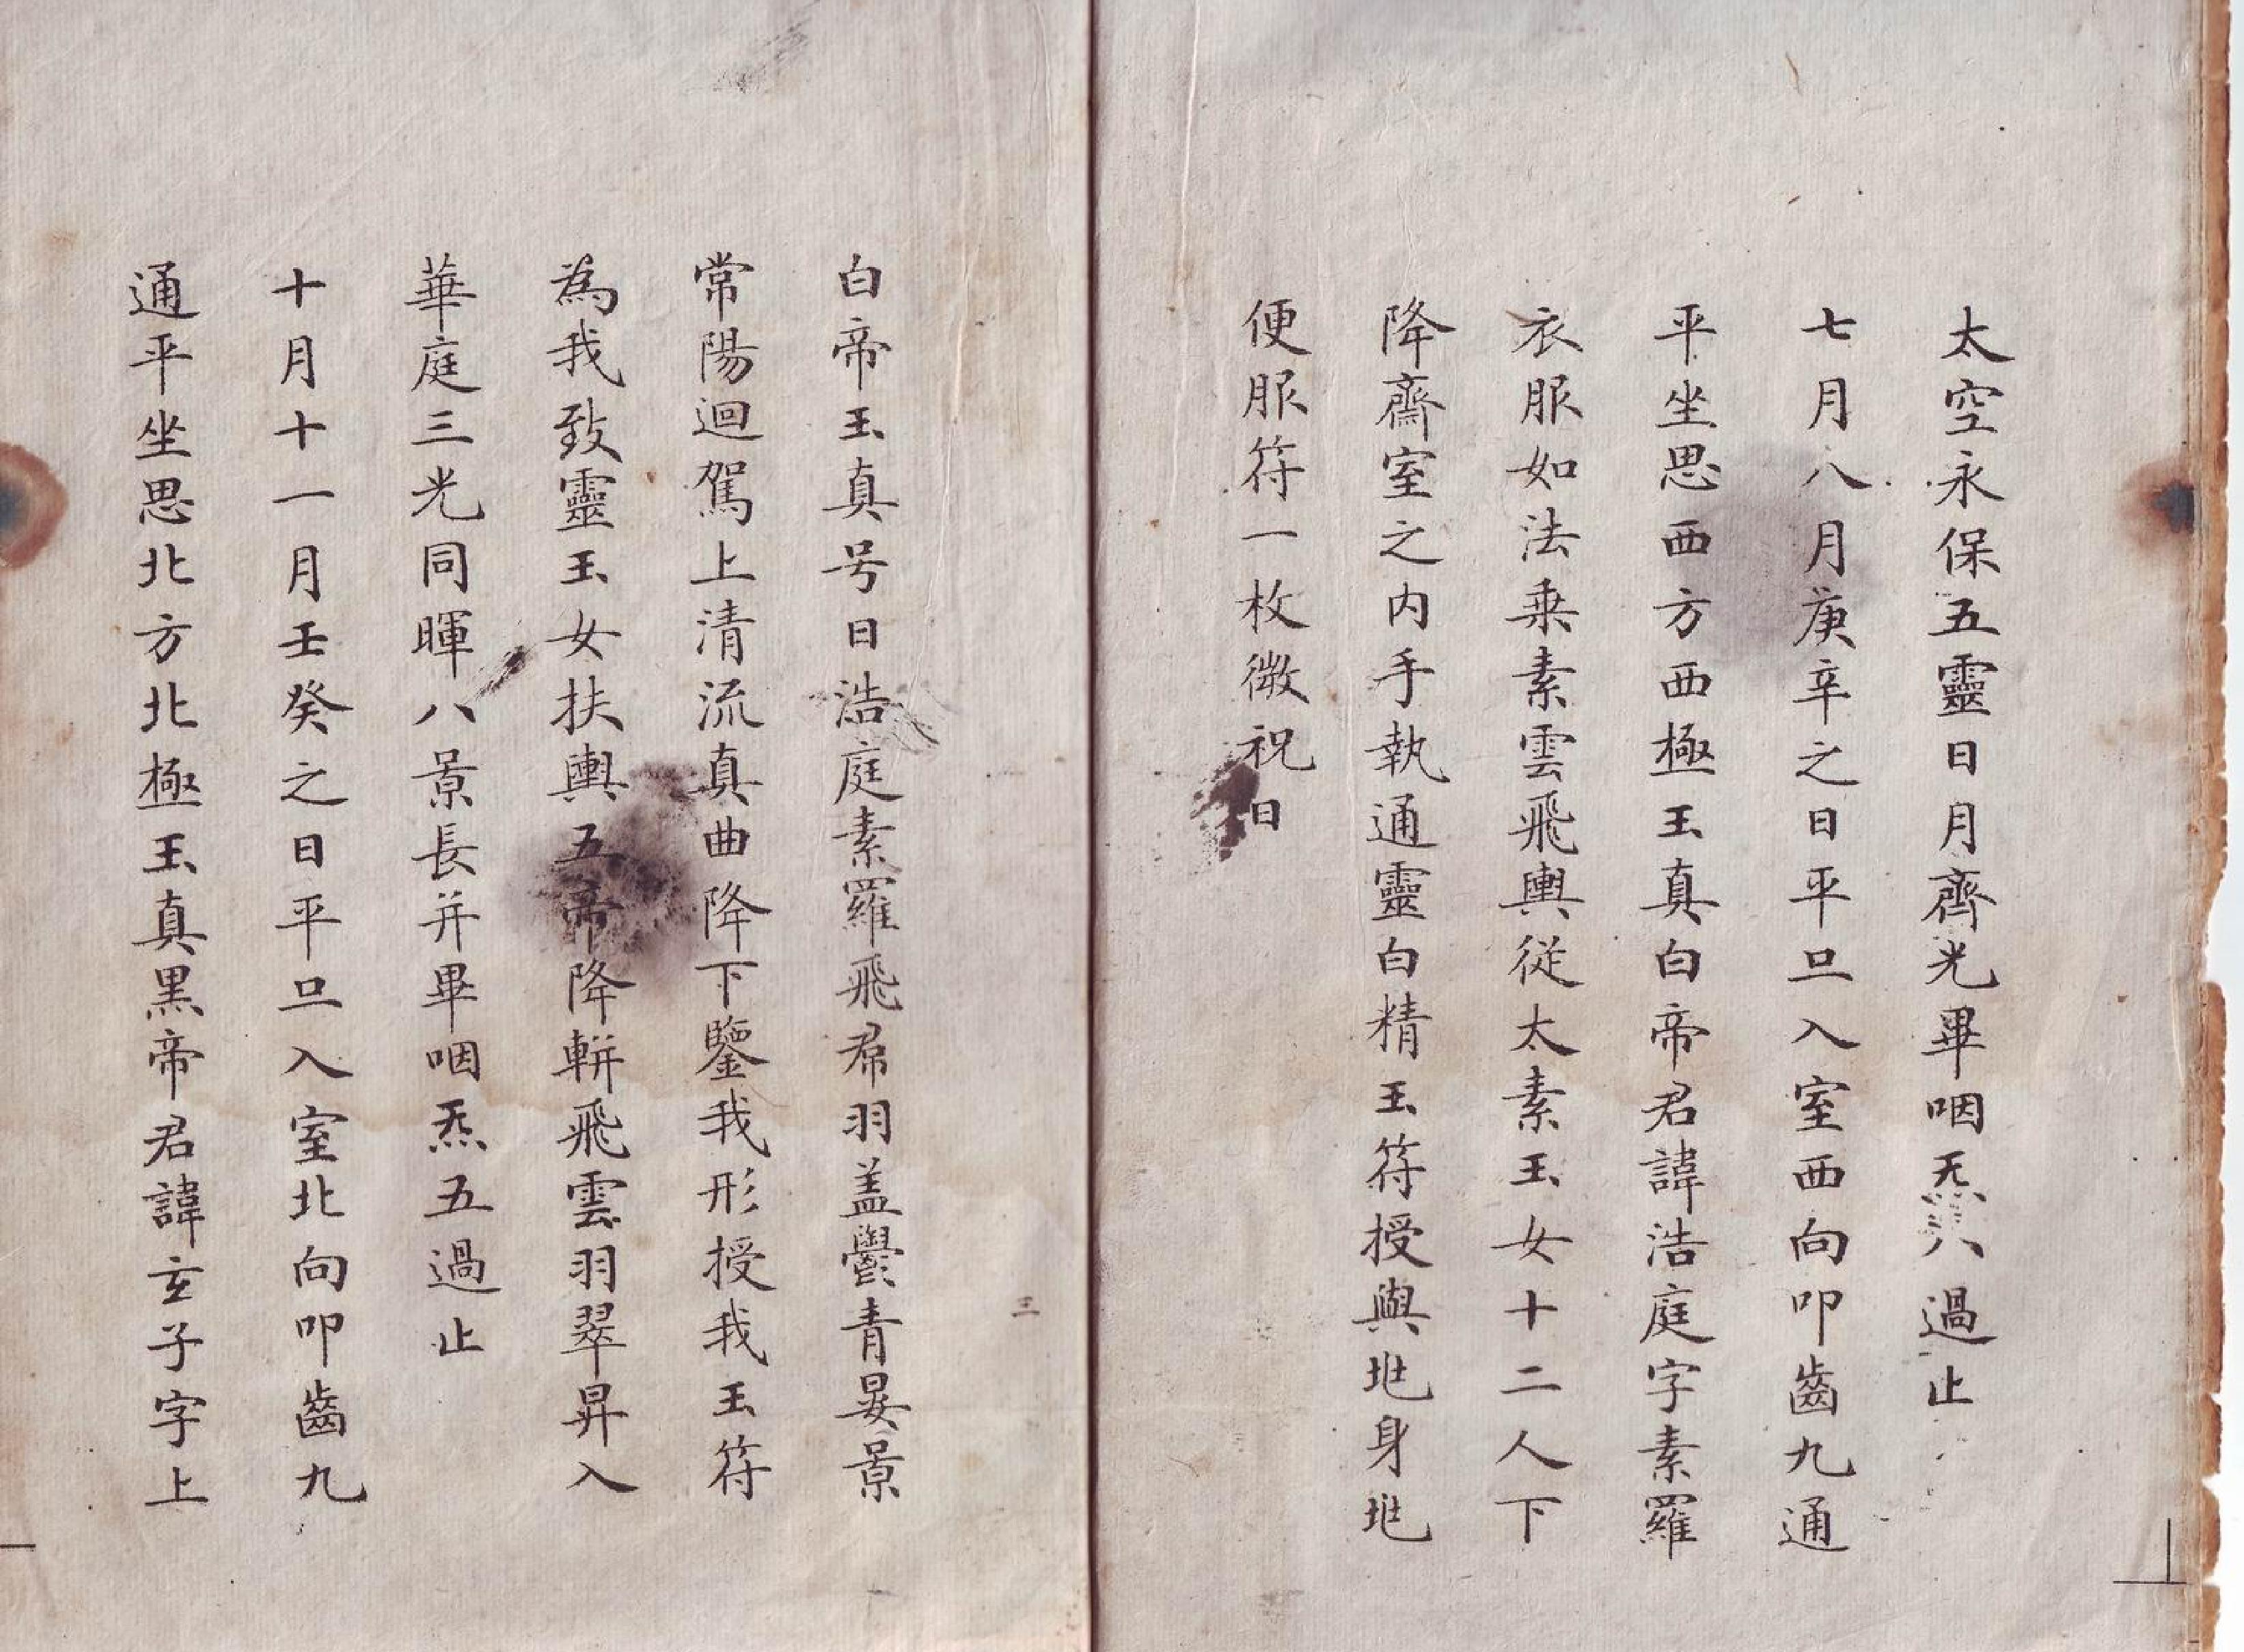 太空永保五靈日月齊光畢咽炁八過止
七月八月庚辛之日平旦入室西向叩齒九通
平坐思西方西極玉真白帝君諱浩庭字素羅
衣服如法乗素雲飛輿從太素玉女十二人下
降齋室之内手執通靈白精玉符授與兆身兆
便服符一枚微祝曰
白帝玉真号曰浩庭素羅飛帬羽盖鬱青晏景
常陽迴駕上清流真曲降下鑒我形授我玉符
為我致靈玉女扶輿五帝降軿飛雲羽翠昇入
華庭三光同暉八景長并畢咽炁五過止
十月十一月壬癸之日平旦入室北向叩齒九
通平坐思北方北極玉真黒帝君諱玄子字上
三